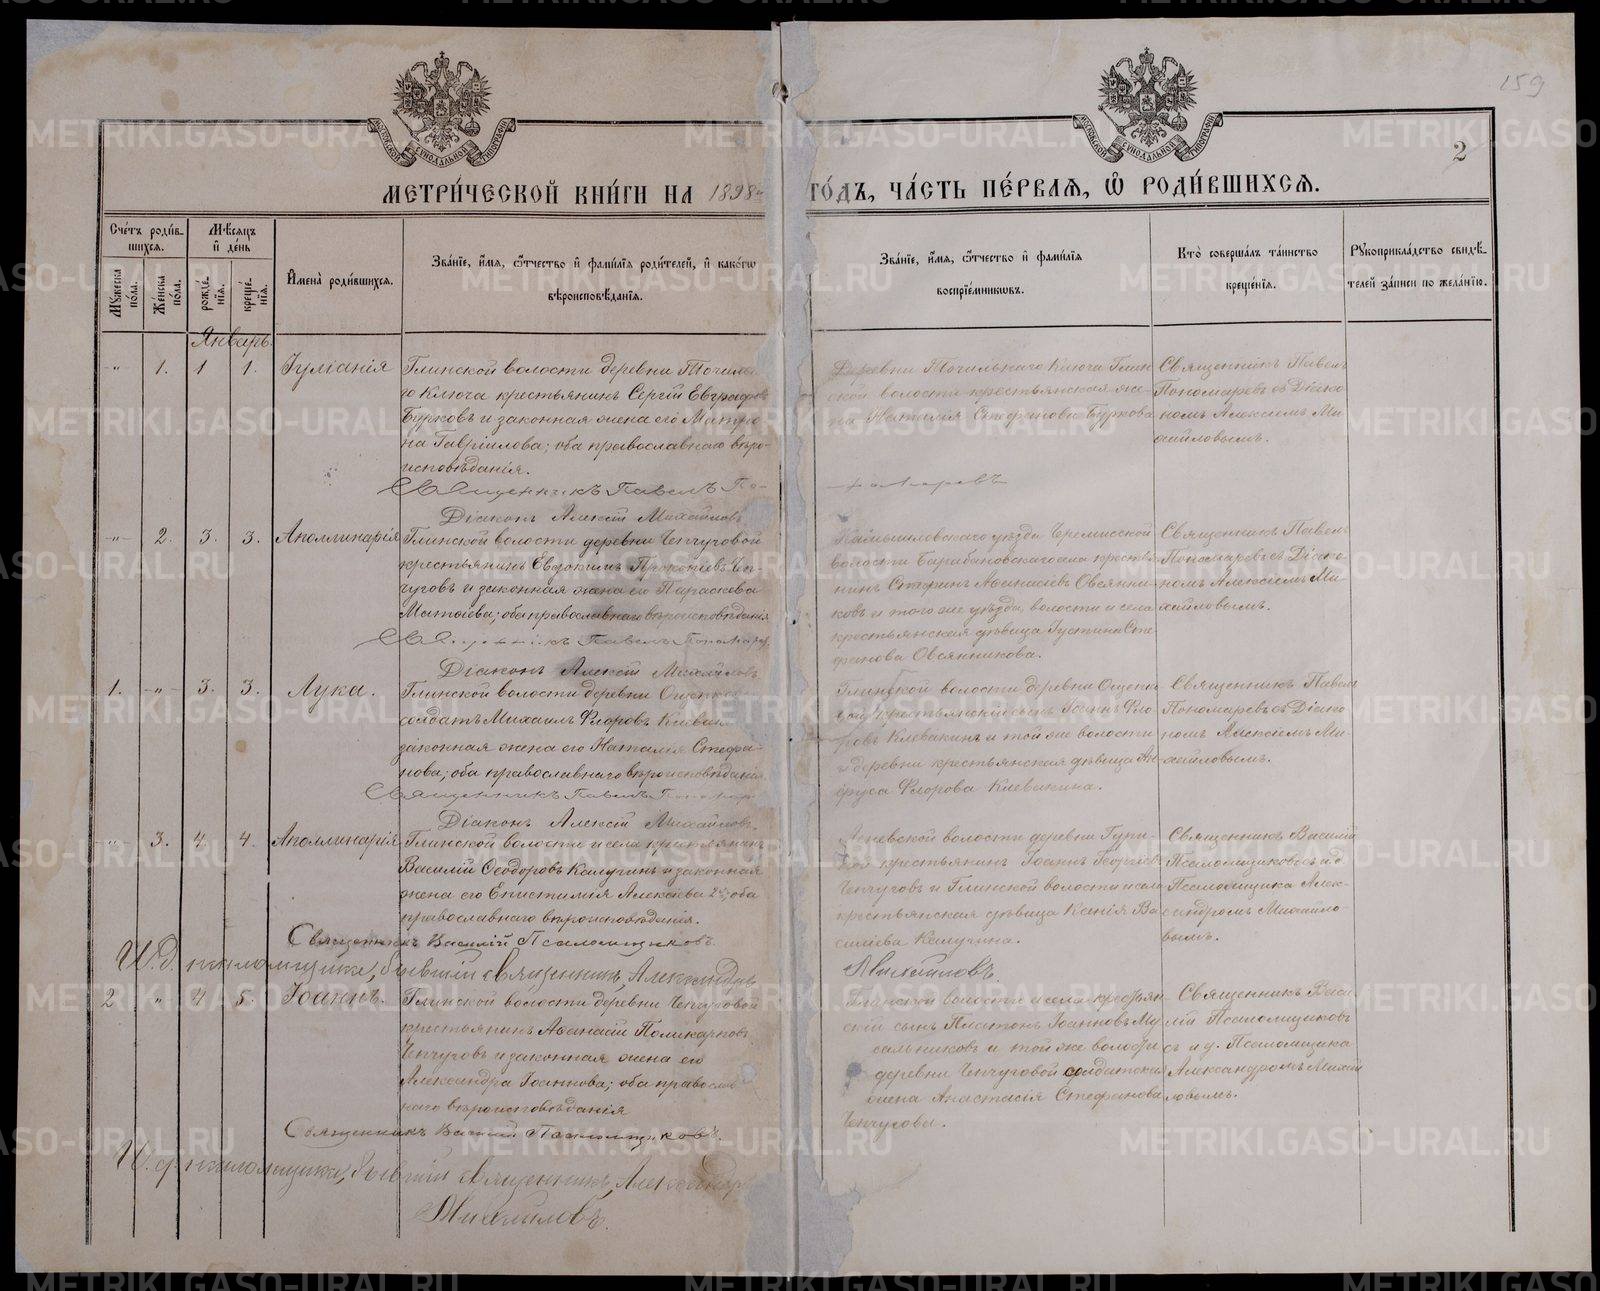 159
2
МОСКОВСКОЙ СѴНОДАЛЬНОЙ ТИПОГРАФІИ
МОСКОВСКОЙ СѴНОДАЛЬНОЙ ТИПОГРАФІИ
МЕТРИ́ЧЕСКОЙ КНИ́ГИ НА 1898 ГО́ДЪ, ЧА́СТЬ ПЕ́РВАЯ, Ѡ҆ РОДИ́ВШИХСЯ.
Сче́тъ роди́в-
шихся.
Мѣ́сяцъ
и҆ де́нь
Мꙋ́жеска по́ла.
Же́нска по́ла.
рожде́нїя.
креще́нїя.
И҆мена̀ роди́вшихся.
Зва́нїе, и҆́мя, ѻ҆́тчество и҆ фами́лїя роди́телей, и҆ како́гѡ
вѣроисповѣ́данїя.
Зва́нїе, и҆́мя, ѻ҆́тчество и҆ фами́лїя
воспрїе́мникѡвъ.
Кто̀ соверша́лъ та́инство
креще́нїя.
Рꙋкоприкла́дство свидѣ́-
телей за́писи по жела́нїю.
Январь.
" 1. 1 1. Іуліанія
Глинской волости деревни Точиль
го Ключа крестьянинъ Сергій Евграфовъ
Бурковъ и законная жена его Матро
на Гавріилова; оба православнаго вѣро-
исповѣданія.
Священникъ Павелъ По-
номаревъ
Діаконъ Алексій Михайловъ
Деревни Точильнаго Ключа Глин
ской волости крестьянская же-
на Наталія Стефанова Буркова
Священникъ Павелъ
Пономаревъ съ Діако
номъ Алексіемъ Ми
хайловымъ.
" 2. 3. 3. Аполлинарія
Глинской волости деревни Чепчуговой
крестьянинъ Евдокимъ Прокопіевъ Чеп-
чуговъ и законная жена его Параскева
Матѳіева; оба православнаго вѣроисповѣданія
Священникъ Павелъ Пономарев
Діаконъ Алексій Михайловъ
Камышловскаго уѣзда Черемисской
волости Барабановскаго села крестья-
нинъ Стефанъ Аѳанасіевъ Овсянни-
ковъ и того же уѣзда, волости и села
крестьянская дѣвица Іустина Сте-
фанова Овсянникова.
Священникъ Павелъ
Пономаревъ съ Діако-
номъ Алексіемъ Ми-
хайловымъ.
1. " 3. 3. Лука.
Глинской волости деревни Ощепк
солдатъ Михаилъ Флоровъ Клевакин
законная жена его Наталія Стефа-
нова; оба православнаго вѣроисповѣданія.
Священникъ Павелъ Пономар
Діаконъ Алексій Михайловъ.
Глинской волости деревни Ощепк
вой крестьянскій сынъ Іоаннъ Фло
ровъ Клевакинъ и той же волости
и деревни крестьянская дѣвица Ан-
фуса Флорова Клевакина.
Священникъ Павелъ
Пономаревъ съ Діако
номъ Алексіемъ Ми-
хайловымъ.
" 3. 4. 4. Аполлинарія
Глинской волости и села крестьянинъ
Василій Ѳеодоровъ Калугинъ и законная
жена его Епистимія Алексѣева; оба
православнаго вѣроисповѣданія.
Священникъ Василій Псаломщиковъ.
И.д. псаломщика, бывшій священникъ, Александръ
Михайловъ
Леневской волости деревни Гури-
ной крестьянинъ Іоаннъ Георгіевъ
Чепчуговъ и Глинской волости и села
крестьянская дѣвица Ксенія Ва
силіева Калугина.
Священникъ Василій
Псаломщиковъ съ и.д
Псаломщика Алек-
сандромъ Михайло-
вымъ.
2 " 4 5. Іоаннъ.
Глинской волости деревни Чепчуговой
крестьянинъ Аѳанасій Поликарповъ
Чепчуговъ и законная жена его
Александра Іоаннова; оба православ
наго вѣроисповѣданія
Священникъ Василій Псаломщиковъ.
И.д. псаломщика, бывшій священникъ, Александръ
Михайловъ.
Глинской волости и села крестьян-
скій сынъ Платонъ Іоанновъ Му
сальниковъ и той же волости
деревни Чепчуговой солдатская
жена Анастасія Стефанова
Чепчугова.
Священникъ Васи
лій Псаломщиковъ
съ и.д. Псаломщика
Александромъ Михай
ловымъ.
METRIKI.GASO-URAL.RU